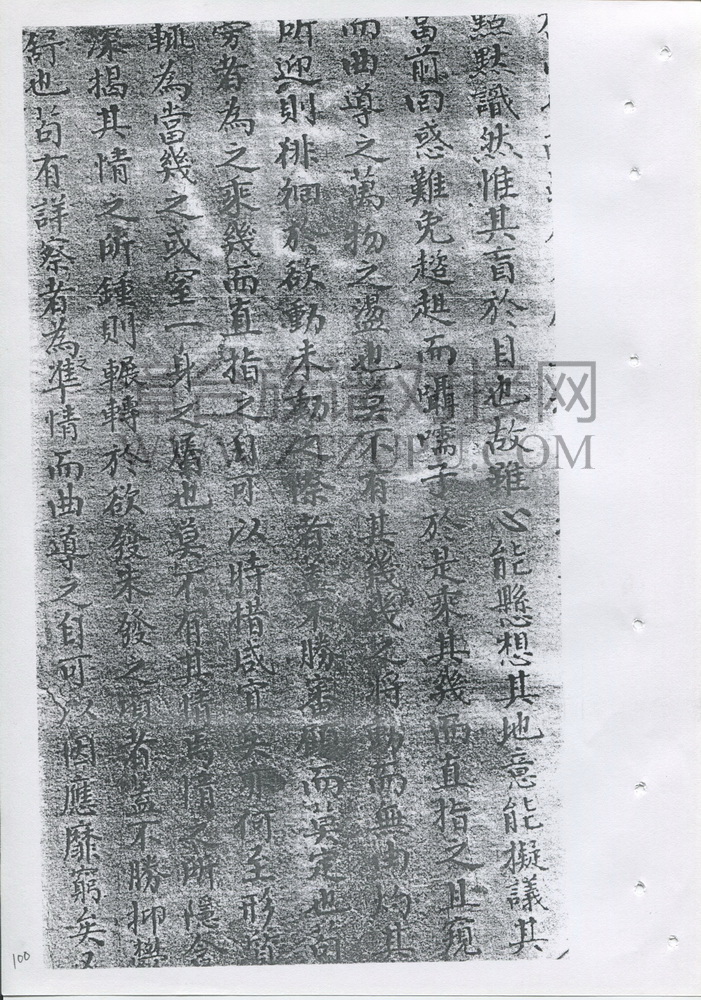 點默識然惟其盲於目也故雖心能懸想其地意能擬議其
當前囘惑難免趦趄而囁嚅子於是乘其幾而直指之且窺
而曲導之萬物之盪也莫不有其幾幾之將動而無由灼其
所迎則徘徊於欲動未動之際者蓋不勝審顧而莫定也苟
旁者為之乘幾而直指之自可以時措咸宜矣亦何至形
輒為當幾之或窒一身之屬也莫不有其情焉情之所隱
深揭其情之所鍾則輾轉於欲發未發之頃者蓋不勝抑
舒也苟有詳察者為之準情而曲導之自可以因應靡窮矣
100